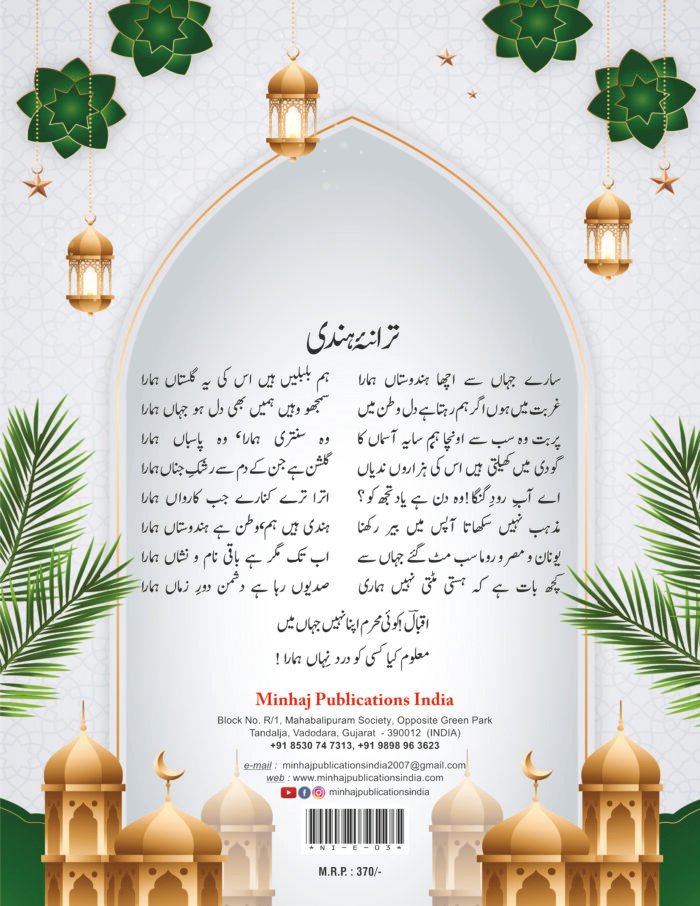 ترانۂ ہندی
سارے جہاں سے اچھا ہندوستاں ہمارا ہم بلبلیں ہیں اس کی یہ گلستاں ہمارا
غربت میں ہوں اگر ہم رہتا ہے دل وطن میں سمجھو وہیں ہمیں بھی دل ہو جہاں ہمارا
پربت وہ سب سے اونچا ہم سایہ آسماں کا وہ سنتری ہمارا، وہ پاسباں ہمارا
گودی میں کھیلتی ہیں اس کی ہزاروں ندیاں گلشن ہے جن کے دم سے رشکِ جناں ہمارا
اے آبِ رودِ گنگا! وہ دن ہے یاد تجھ کو؟ اترا ترے کنارے جب کارواں ہمارا
مذہب نہیں سکھاتا آپس میں بیر رکھنا ہندی ہیں ہم، وطن ہے ہندوستاں ہمارا
یونان و مصر و روما سب مٹ گئے جہاں سے اب تک مگر ہے باقی نام و نشاں ہمارا
کچھ بات ہے کہ ہستی مٹتی نہیں ہماری صدیوں رہا ہے دشمن دورِ زماں ہمارا
اقبالؔ! کوئی محرم اپنا نہیں جہاں میں
معلوم کیا کسی کو دردِ نہاں ہمارا!
Minhaj Publications India
Block No. R/1, Mahabalipuram Society, Opposite Green Park
Tandalja, Vadodara, Gujarat - 390012 (INDIA)
+91 8530 74 7313, +91 9898 96 3623
e-mail : minhajpublicationsindia2007@gmail.com
web : www.minhajpublicationsindia.com
minhajpublicationsindia
*NI-E-03*
M.R.P. : 370/-